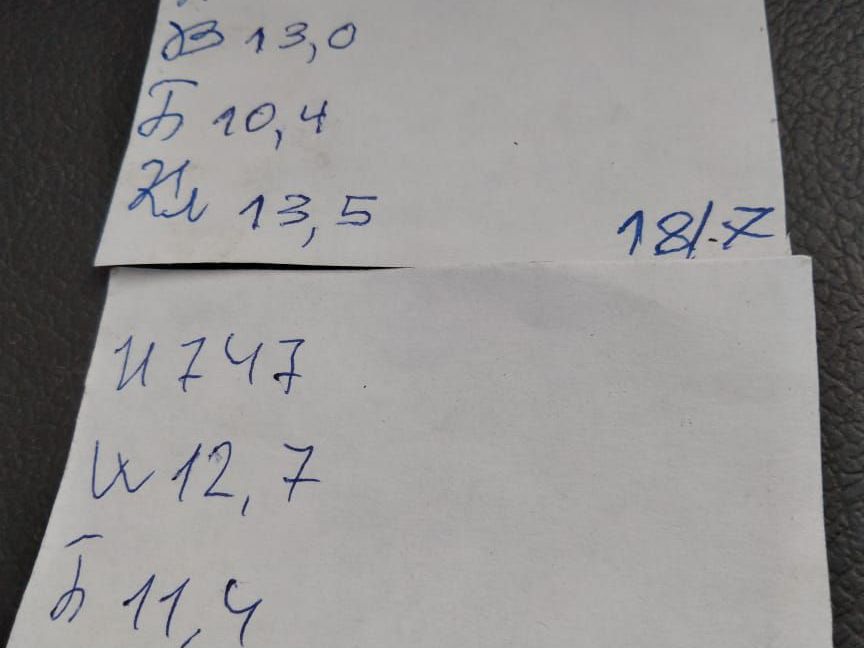 В 13,0
Б 10,4
Кл 13,5
18/.7
И 747
И 12,7
Б 11,4